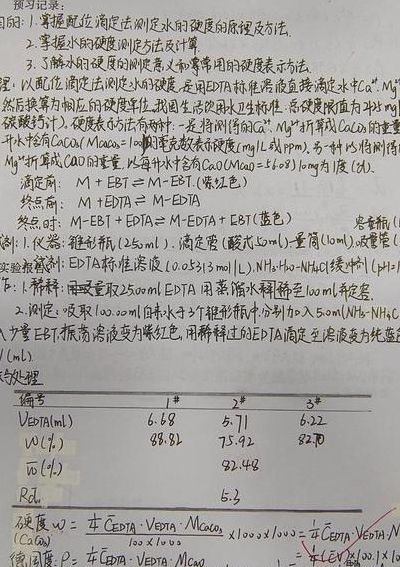 预习记录:
目的: 1. 掌握配位滴定法测定水的硬度的原理及方法.
2. 掌握水的硬度测定方法及计算.
3. 了解水的硬度的测定意义和常用的硬度表示方法.
理: 以配位滴定法测定水的硬度,是用EDTA标准溶液直接滴定水中Ca²⁺、Mg²⁺
然后换算为相应的硬度单位.我国生活饮用水卫生标准:总硬度限值为 mg
碳酸钙计). 硬度表示方法有两种:一是将测得的Ca²⁺、Mg²⁺折算成CaCO₃的重量
升水中含有CaCO₃(MCaCO₃=100 毫克数表示硬度(mg/L或ppm). 另一种以将测得
Mg²⁺折算成CaO的重量,以每升水中含有CaO(MCaO=56.08)10mg为1度(d).
滴定前: M+EBT⇌M-EBT.(紫红色)
终点前: M+EDTA⇌M-EDTA
终点时: M-EBT+EDTA⇌M-EDTA+EBT(蓝色)
容量瓶(
剂: 1. 仪器: 锥形瓶(250ml)、滴定管(酸式50ml)、量筒(10ml)、吸量管(
实验报 试剂: EDTA标准溶液(0.05313mol/L)、NH₃·H₂O-NH₄Cl缓冲剂(pH=1
1. 稀释: 量取25.00ml EDTA 用蒸馏水稀释至100ml并定容.
2. 测定: 吸取100.00ml自来水于3个锥形瓶中,分别加入5.0ml(NH₃-NH₄C
入少量EBT.振荡溶液变为紫红色,用稀释过的EDTA滴定至溶液变为纯蓝色
V(ml).
与处理
编号 1# 2# 3#
VEDTA(ml) 6.68 5.71 6.22
W(%) 88.82 75.92 82.70
W̄(%) 82.48
Rd̄. 5.3
硬度 W = ¼C̄EDTA·VEDTA·MCaCO₃ / 100×1000 ×1000×1000 = ¼C̄EDTA·VEDTA·M
(CaCO₃)
德国度: ρ = ¼C̄EDTA·VEDTA·MCaO